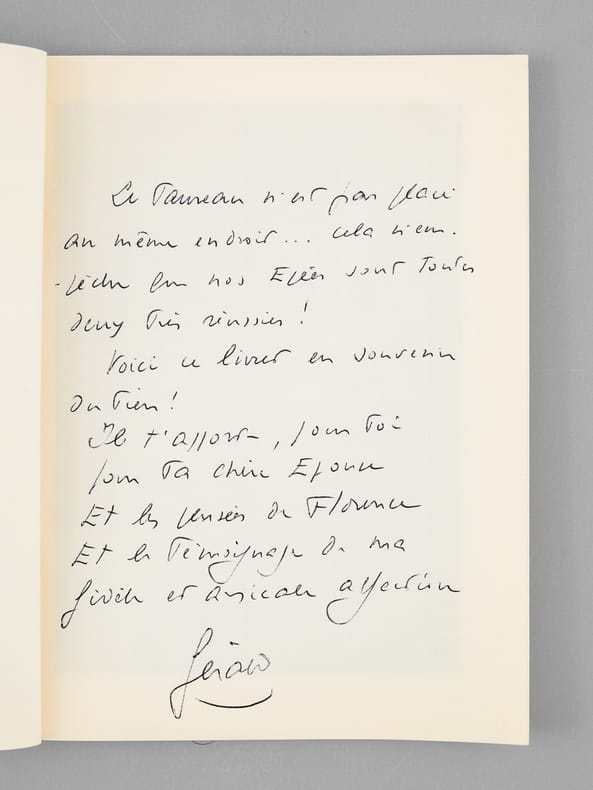 Le Taureau n'est pas placé
au même endroit... cela n'em-
-pêche que nos Epées sont toutes
deux très réussies !
Voici ce livret en souvenir
du tien !
Il t'apporte, pour toi
pour ta chère Epouse
Et les pensées de Florence
Et le témoignage de ma
fidèle et amicale affection
Gérard